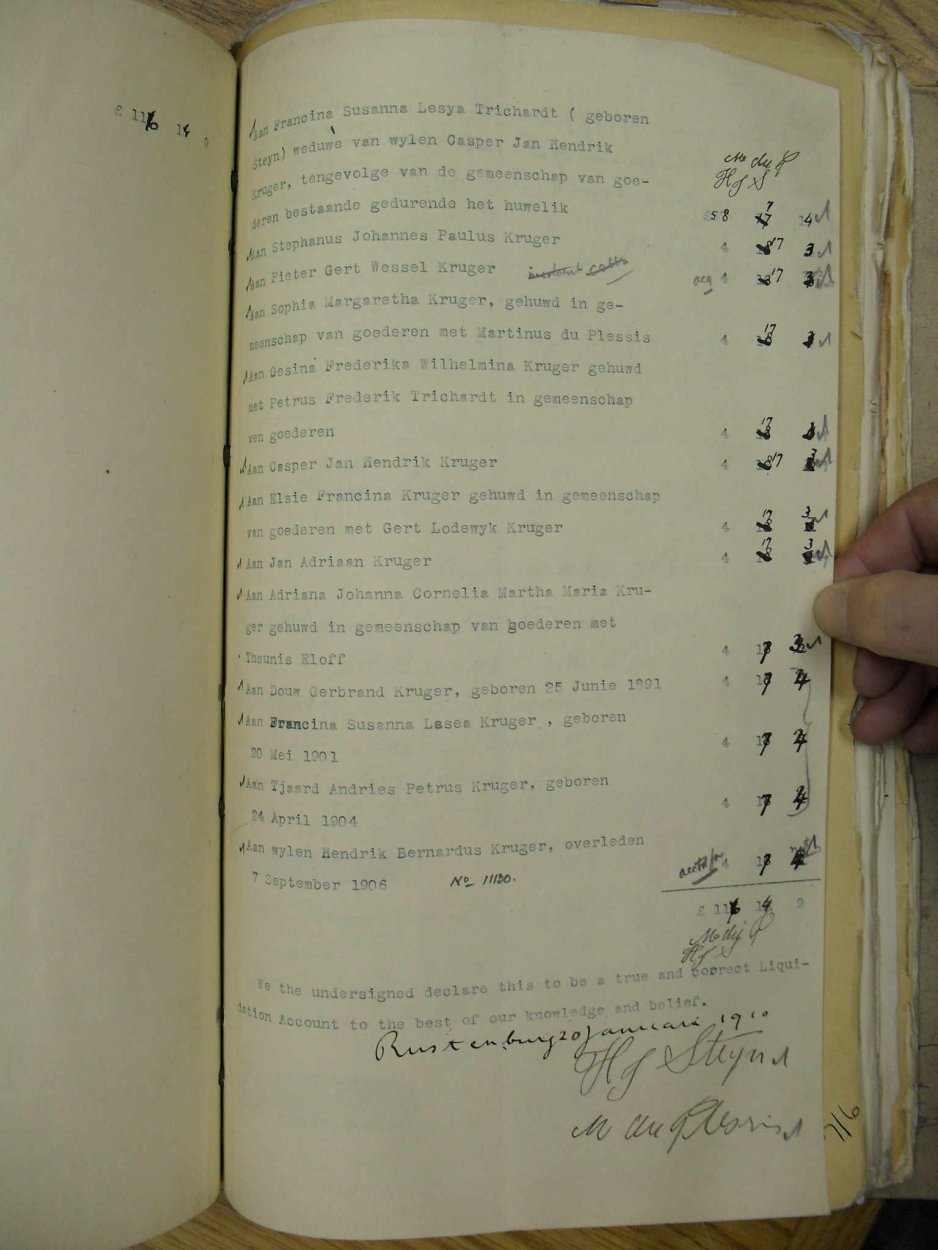 £ 116 14 9
Aan Francina Susanna Lesya Trichardt ( geboren
Steyn) weduwe van wylen Casper Jan Hendrik
M du P
Kruger, tengevolge van de gemeenschap van goe-
H J S
deren bestaande gedurende het huwelik £58 7 4
Aan Stephanus Johannes Paulus Kruger 4 17 3
Aan Pieter Gert Wessel Kruger 4 17 3
Aan Sophia Margaretha Kruger, gehuwd in ge-
meenschap van goederen met Martinus du Plessis 4 17 3
Aan Gesina Frederika Wilhelmina Kruger gehuwd
met Petrus Frederik Trichardt in gemeenschap
ven goederen 4 17 3
Aan Casper Jan Hendrik Kruger 4 17 3
Aan Elsie Francina Kruger gehuwd in gemeenschap
van goederen met Gert Lodewyk Kruger 4 17 3
Aan Jan Adriaan Kruger 4 17 3
Aan Adriana Johanna Cornelia Martha Maria Kru-
ger gehuwd in gemeenschap van goederen met
Theunis Eloff 4 17 3
Aan Douw Gerbrand Kruger, geboren 25 Junie 1891 4 17 4
Aan Francina Susanna Lasea Kruger , geboren
20 Mei 1901 4 17 4
Aan Tjaard Andries Petrus Kruger, geboren
24 April 1904 4 17 4
Aan wylen Hendrik Bernardus Kruger, overleden
7 September 1906 No 11130. 4 17 4
£ 116 14 9
M du P
H J S
We the undersigned declare this to be a true and correct Liqui-
dation Account to the best of our knowledge and belief.
Rustenburg 20 Januari 1910
H J Steyn
M du Plessis
716